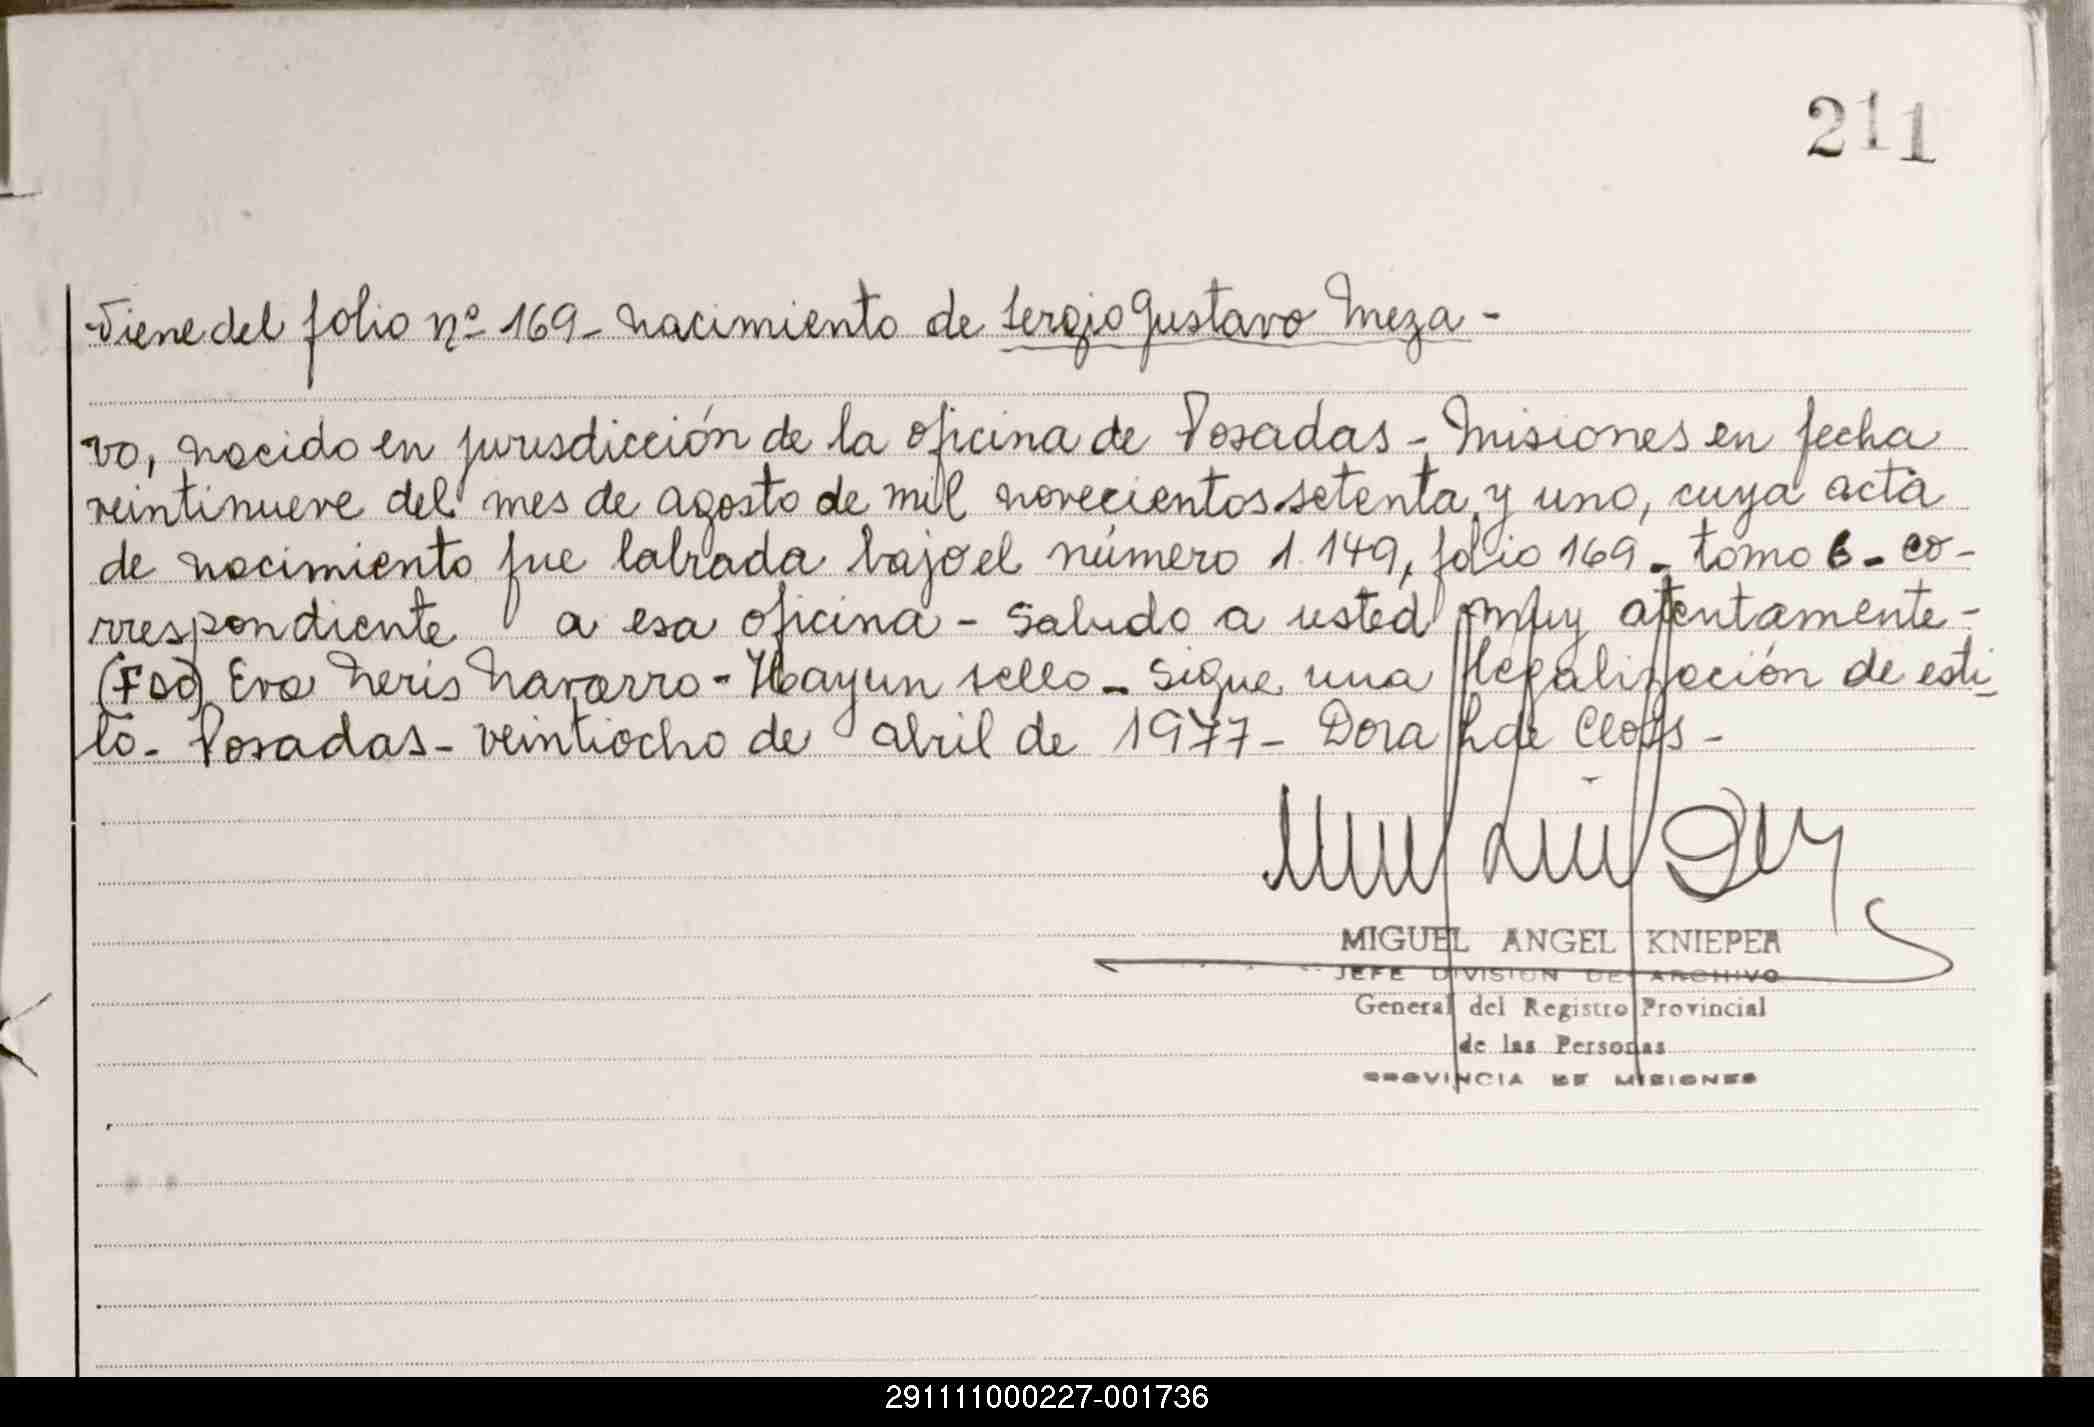 211
Viene del folio nº 169 - nacimiento de Sergio Gustavo Meza -
vo, nacido en jurisdicción de la oficina de Posadas - Misiones en fecha
veintinueve del mes de agosto de mil novecientos setenta y uno, cuya acta
de nacimiento fue labrada bajo el número 1.149, folio 169 - tomo 6 - co-
rrrespondiente a esa oficina - Saludo a usted muy atentamente -
(Fdo) Eva Neris Navarro - Hay un sello - Sigue una legalización de esti-
lo - Posadas - veintiocho de abril de 1977 - Dora L de Closs -
MIGUEL ANGEL KNIEPER
JEFE DIVISION DE ARCHIVO
General del Registro Provincial
de las Personas
PROVINCIA DE MISIONES
291111000227-001736